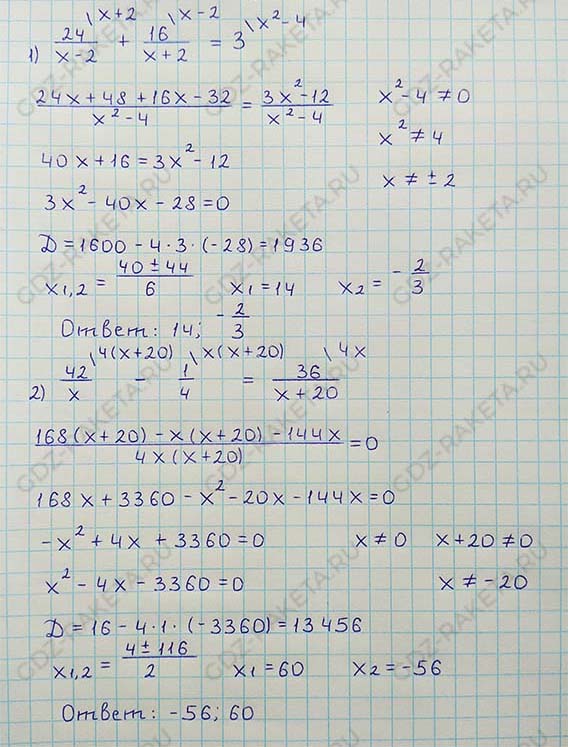 1) 24/(x-2) \x+2 + 16/(x+2) \x-2 = 3 \x²-4
(24x+48+16x-32)/(x²-4) = (3x²-12)/(x²-4)
x²-4≠0
x²≠4
x≠±2
40x+16=3x²-12
3x²-40x-28=0
Д=1600-4·3·(-28)=1936
x₁,₂ = (40±44)/6 x₁=14 x₂=-2/3
Ответ: 14; -2/3
2) 42/x \4(x+20) - 1/4 \x(x+20) = 36/(x+20) \4x
(168(x+20)-x(x+20)-144x)/(4x(x+20)) =0
168x+3360-x²-20x-144x=0
-x²+4x+3360=0 x≠0 x+20≠0
x²-4x-3360=0 x≠-20
Д=16-4·1·(-3360)=13456
x₁,₂ = (4±116)/2 x₁=60 x₂=-56
Ответ: -56; 60
GDZ-RAKETA.RU